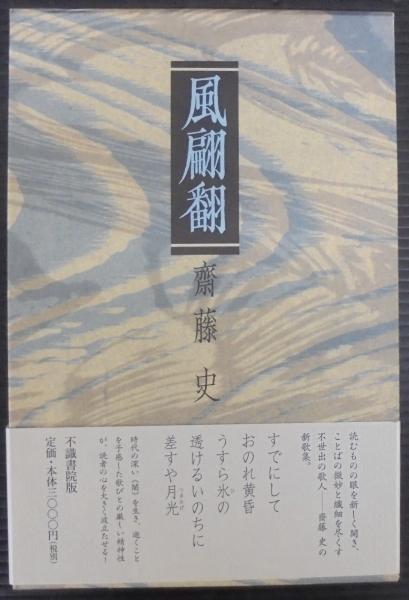 風翩翻
齋藤 史
読むものの眼を新しく開き、
ことばの微妙と繊細を尽くす
不世出の歌人──齋藤 史の
新歌集。
すでにして
おのれ黄昏
うすら氷の
透けるいのちに
差すや月光
時代の深い〈闇〉を生き、逝くこと
を予感した歌びとの厳しい精神性
が、読者の心を大きく波立たせる！
不識書院版
定価・本体三〇〇〇円(税別)